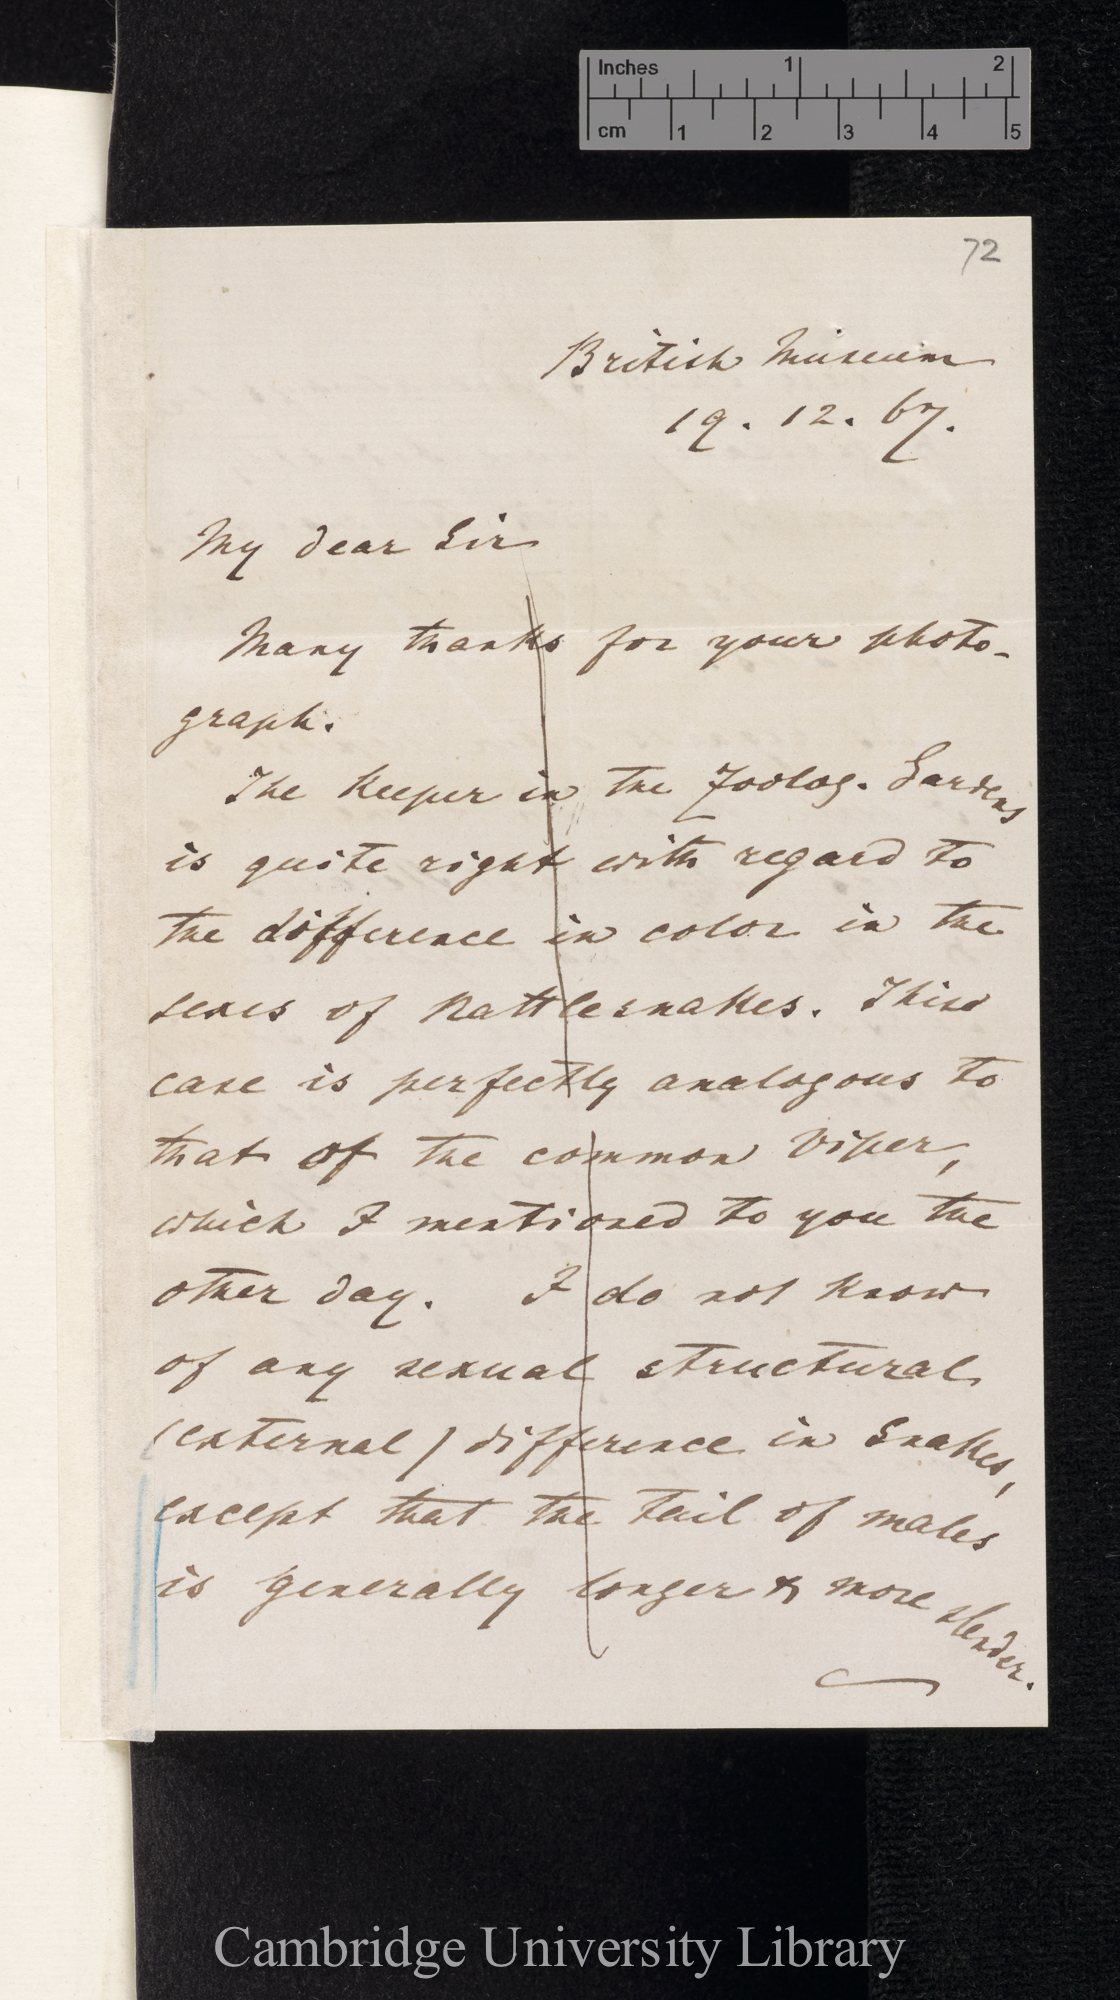 Inches 1 2
cm 1 2 3 4 5
72
British Museum
19. 12. 67.
My dear Sir
Many thanks for your photo-
graph.
The Keeper in the Zoolog. Gardens
is quite right with regard to
the difference in color in the
sexes of Rattlesnakes. This
case is perfectly analogous to
that of the common Viper,
which I mentioned to you the
other day. I do not know
of any sexual structural
(external) difference in Snakes,
except that the tail of males
is generally longer & more slender.
Cambridge University Library